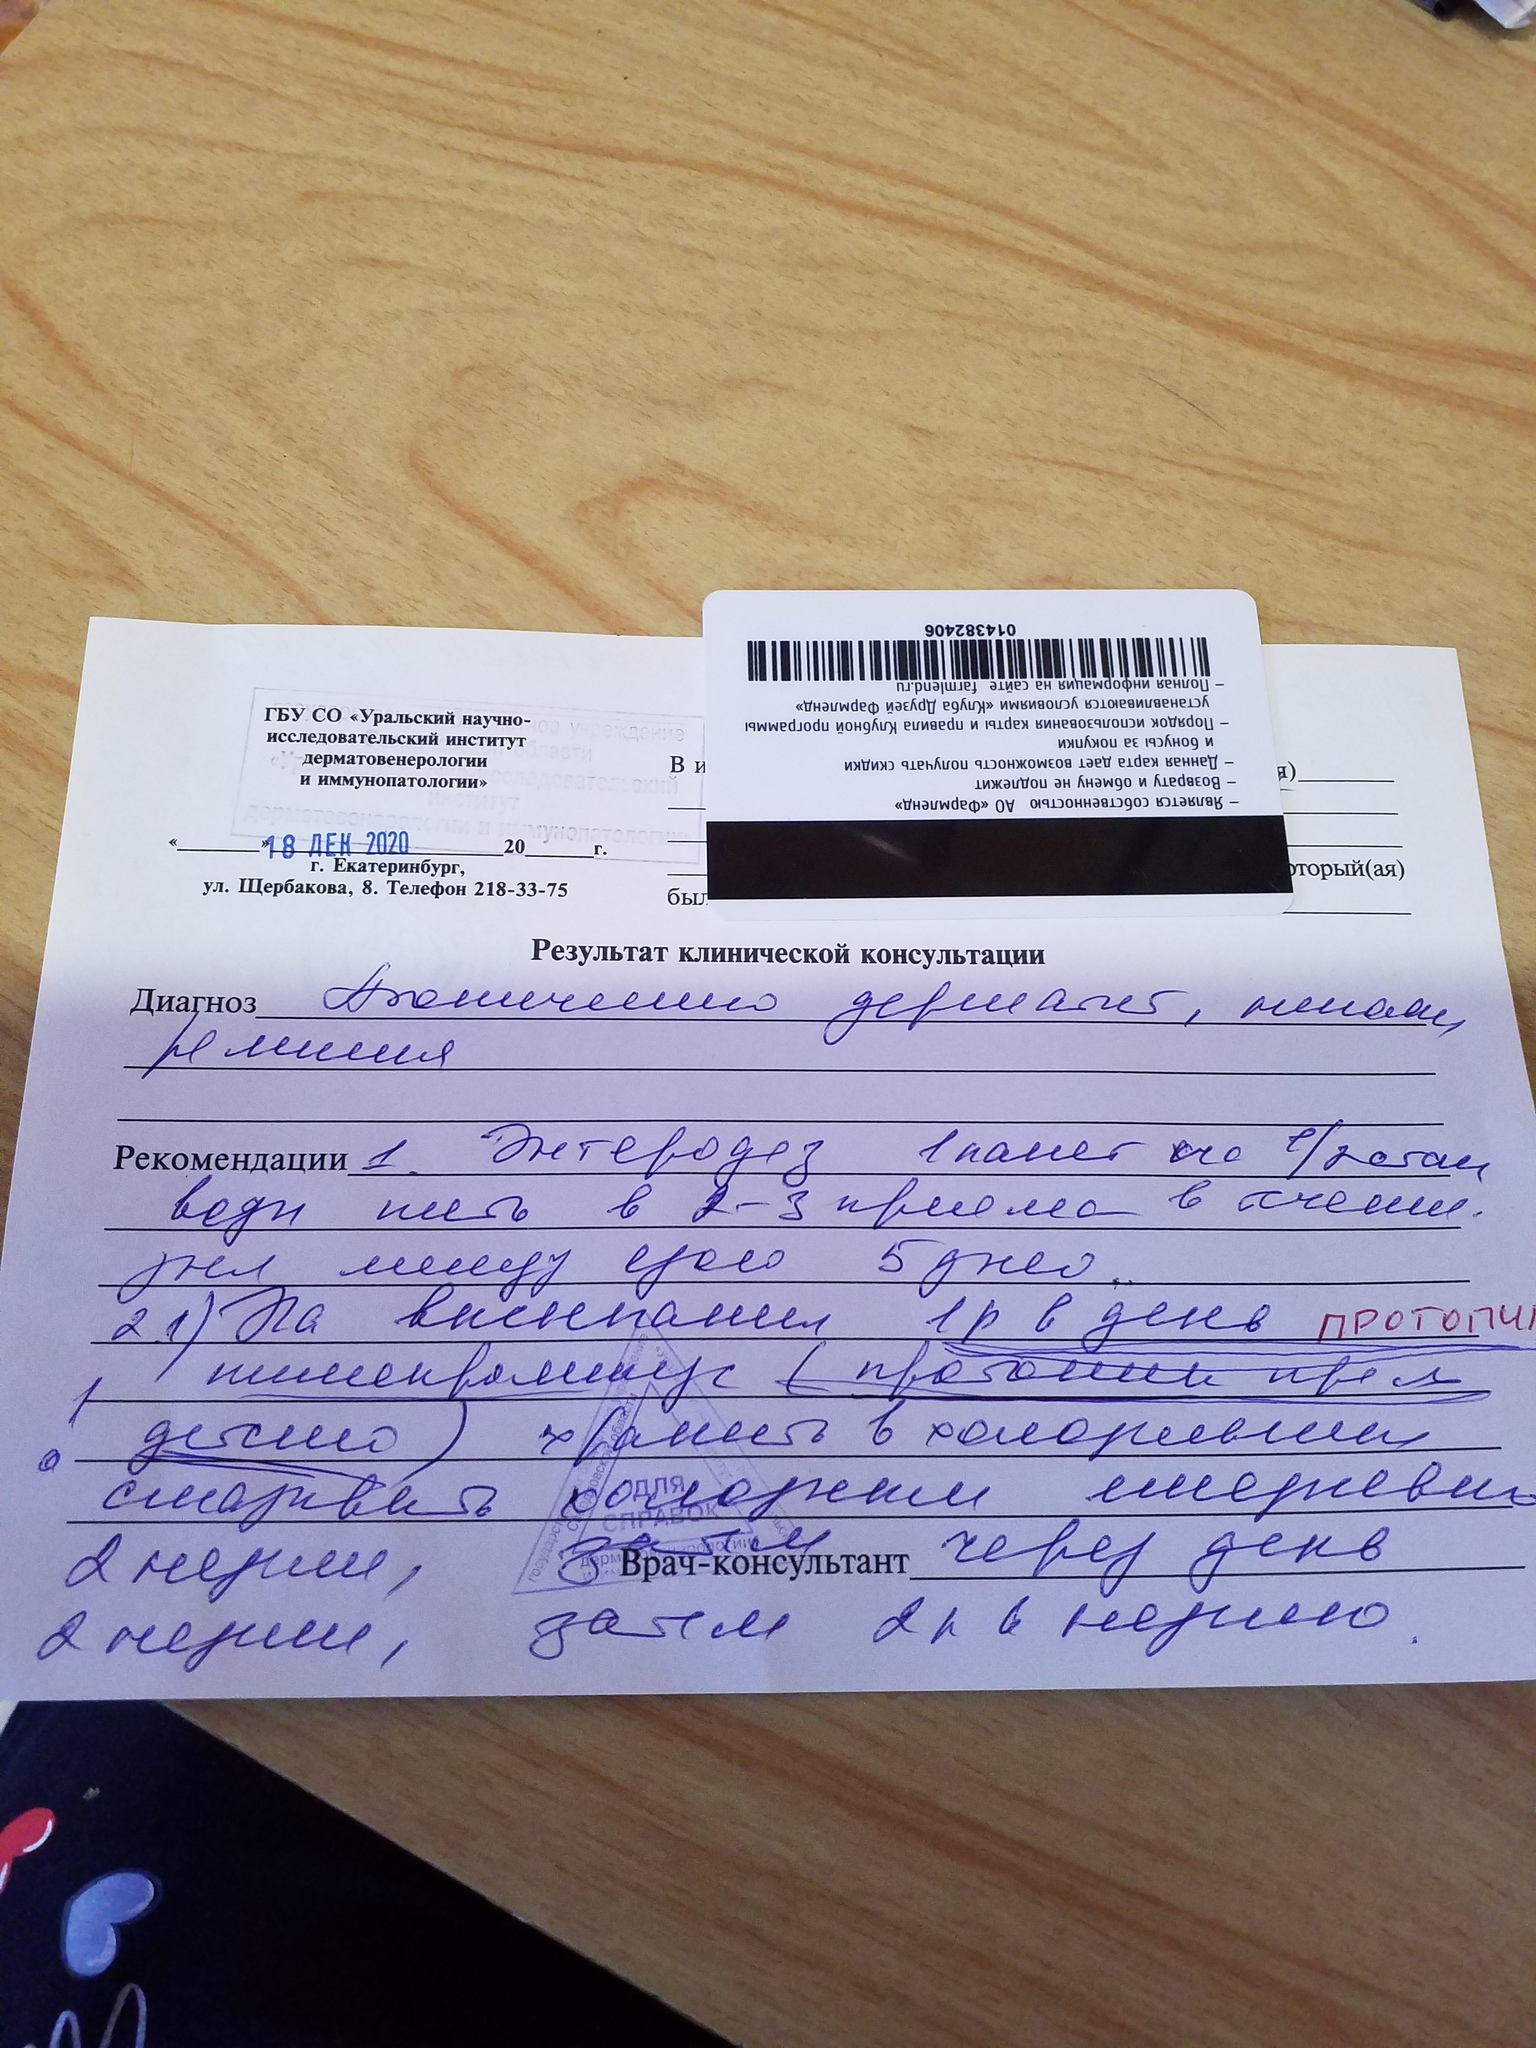 014382406
– Полная информация на сайте farmlend.ru
устанавливаются условиями «Клуба Друзей Фармленд»
– Порядок использования карты и правила Клубной программы
и бонусы за покупки
– Данная карта дает возможность получать скидки
– Возврату и обмену не подлежит
– Является собственностью АО «Фармленд»
ГБУ СО «Уральский научно-
исследовательский институт
дерматовенерологии
и иммунопатологии»
«» 18 ДЕК 2020 20 г.
г. Екатеринбург,
ул. Щербакова, 8. Телефон 218-33-75
В и
я)
оторый(ая)
был
Результат клинической консультации
Диагноз дерматит,
Рекомендации 1. Энтеродез 1 пакет на
воды пить в 2-3 приема в течении
между едой 5 дней.
2.1) На высыпания 1 р в день ПРОТОПИ
пимекролимус (
) хранить в холодильнике
смазывать холодным ежедневно
2 недели, затем Врач-консультант через день
2 недели, затем 2 р в неделю.
ДЛЯ
СПРАВОК